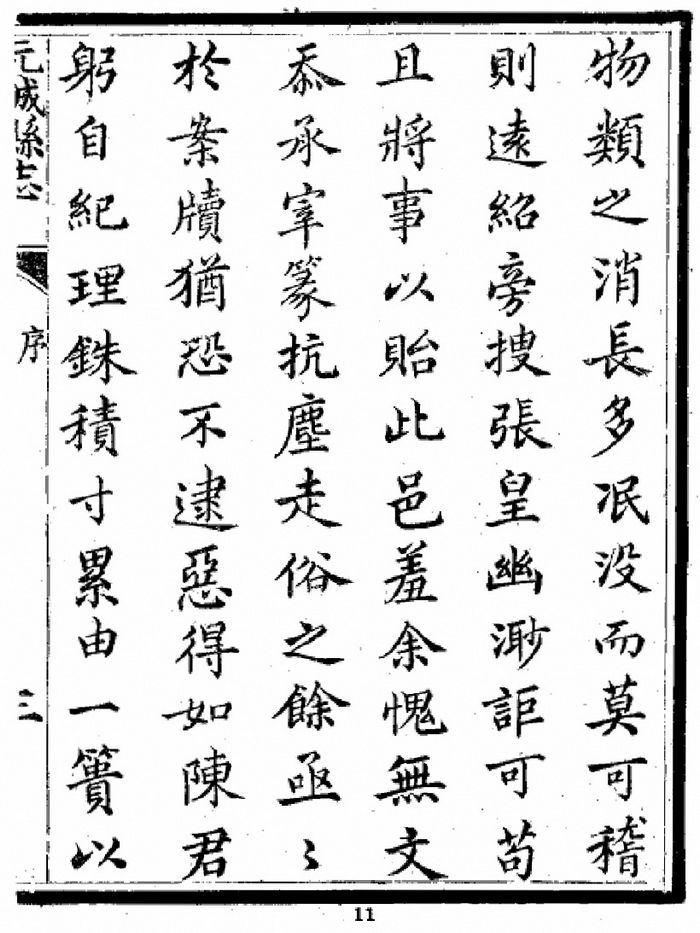 物類之消長多冺沒而莫可稽
則遠紹旁搜張皇幽渺詎可苟
且將事以貽此邑羞余愧無文
忝承宰篆抗塵走俗之餘亟〻
於案牘猶恐不逮惡得如陳君
躬自紀理銖積寸累由一簣以
元城縣志
序
三
11